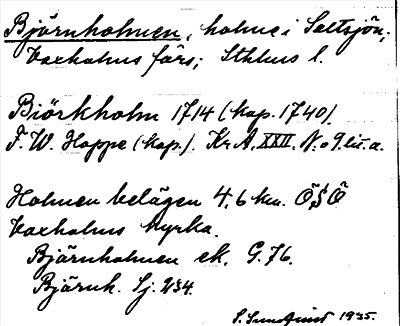 Björnholmen, holme i Saltsjön;
Vaxholms förs; Sthlms l.
Biörkholm 1714 (kop. 1740)
F. W. Hoppe (kop.). Kr A. XXII. N:o 9. lit. a.
Holmen belägen 4,6 km. ÖSÖ
Vaxholms kyrka.
Björnholmen ek. G. 76.
Björnh. Sj. 234.
S. Sundqvist 1935.